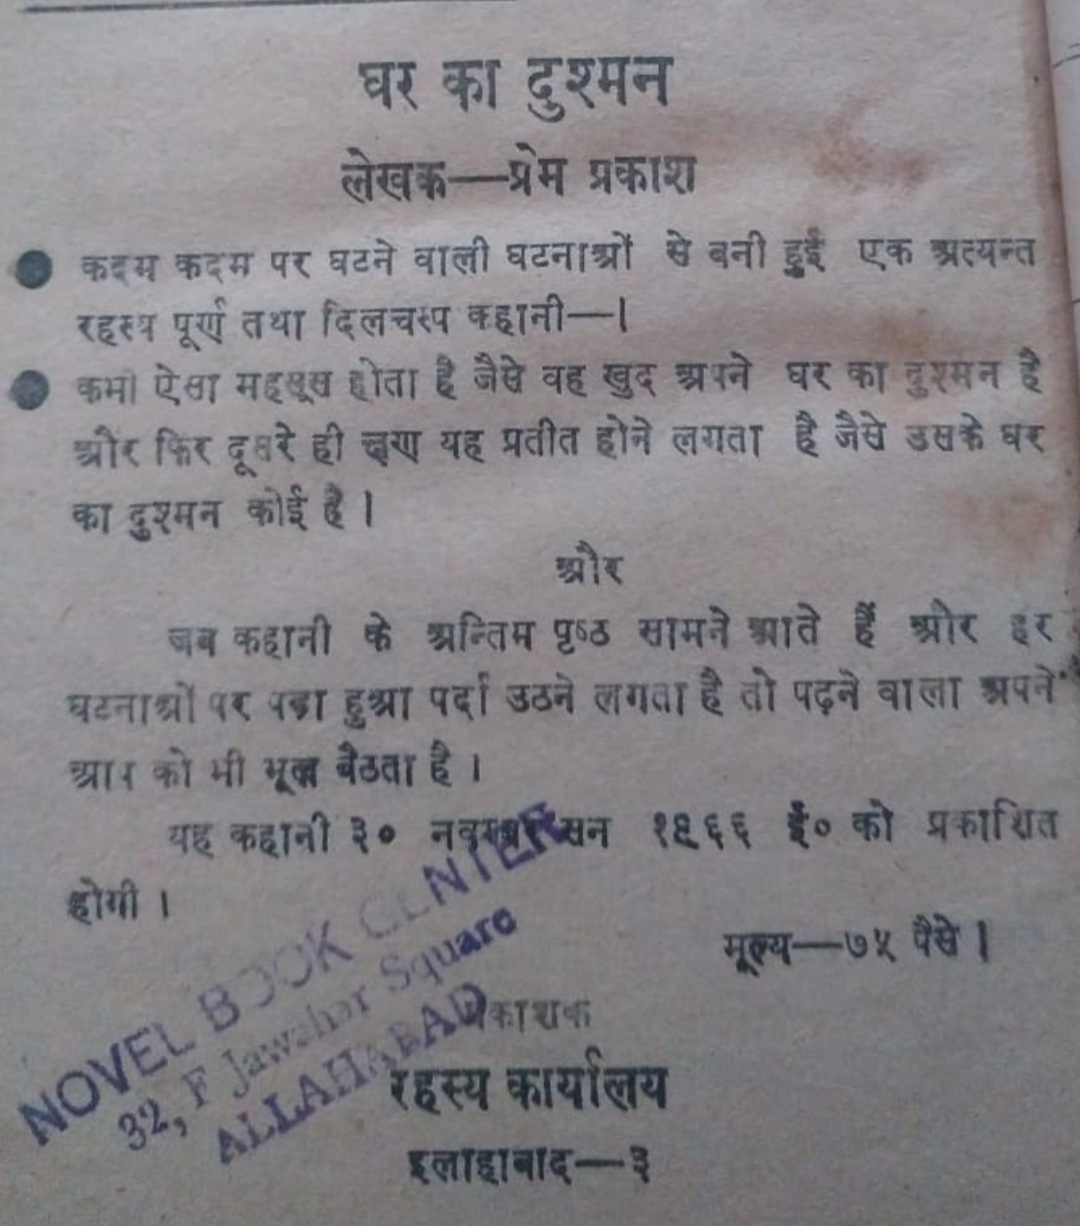 घर का दुश्मन
लेखक—प्रेम प्रकाश
● कदम कदम पर घटने वाली घटनाओं से बनी हुई एक अत्यन्त
रहस्य पूर्ण तथा दिलचस्प कहानी—।
● कभी ऐसा महसूस होता है जैसे वह खुद अपने घर का दुश्मन है
और फिर दूसरे ही क्षण यह प्रतीत होने लगता है जैसे उसके घर
का दुश्मन कोई है ।
और
जब कहानी के अन्तिम पृष्ठ सामने आते हैं और हर
घटनाओं पर पड़ा हुआ पर्दा उठने लगता है तो पढ़ने वाला अपने
आप को भी भूल बैठता है ।
यह कहानी ३० नवम्बर सन १९६६ ई० को प्रकाशित
होगी ।
मूल्य—७५ पैसे ।
प्रकाशक
रहस्य कार्यालय
इलाहाबाद—३
NOVEL BOOK CENTER
32, F Jawahar Square
ALLAHABAD